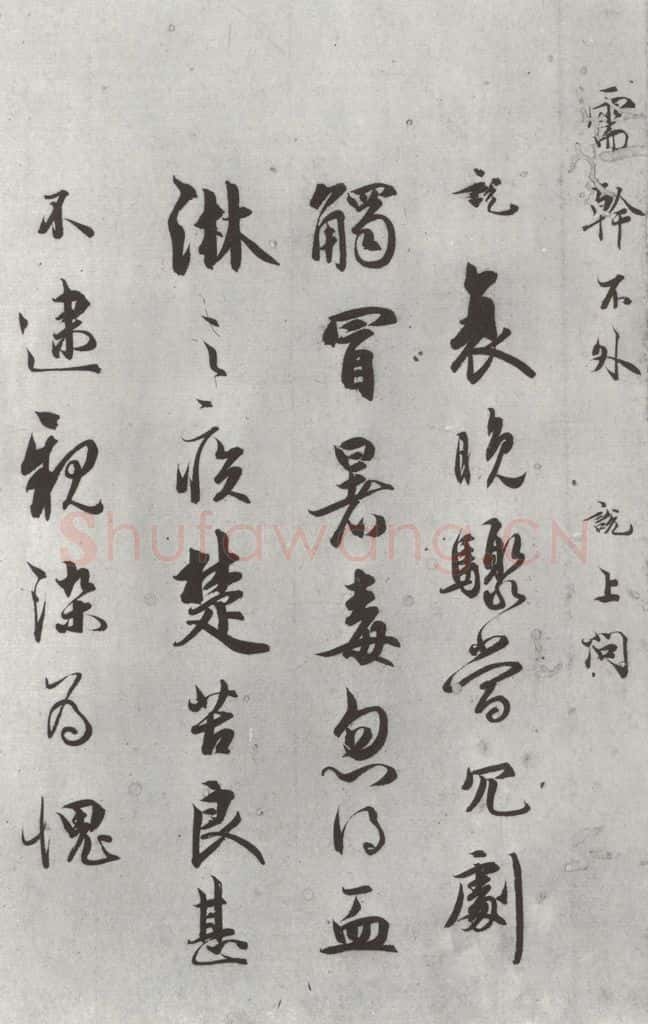 需幹不外 說上問
說衰晚驟當冗劇
觸冒暑毒忽得血
淋之疾楚苦良甚
不逮親染為愧
Shufawang.CN